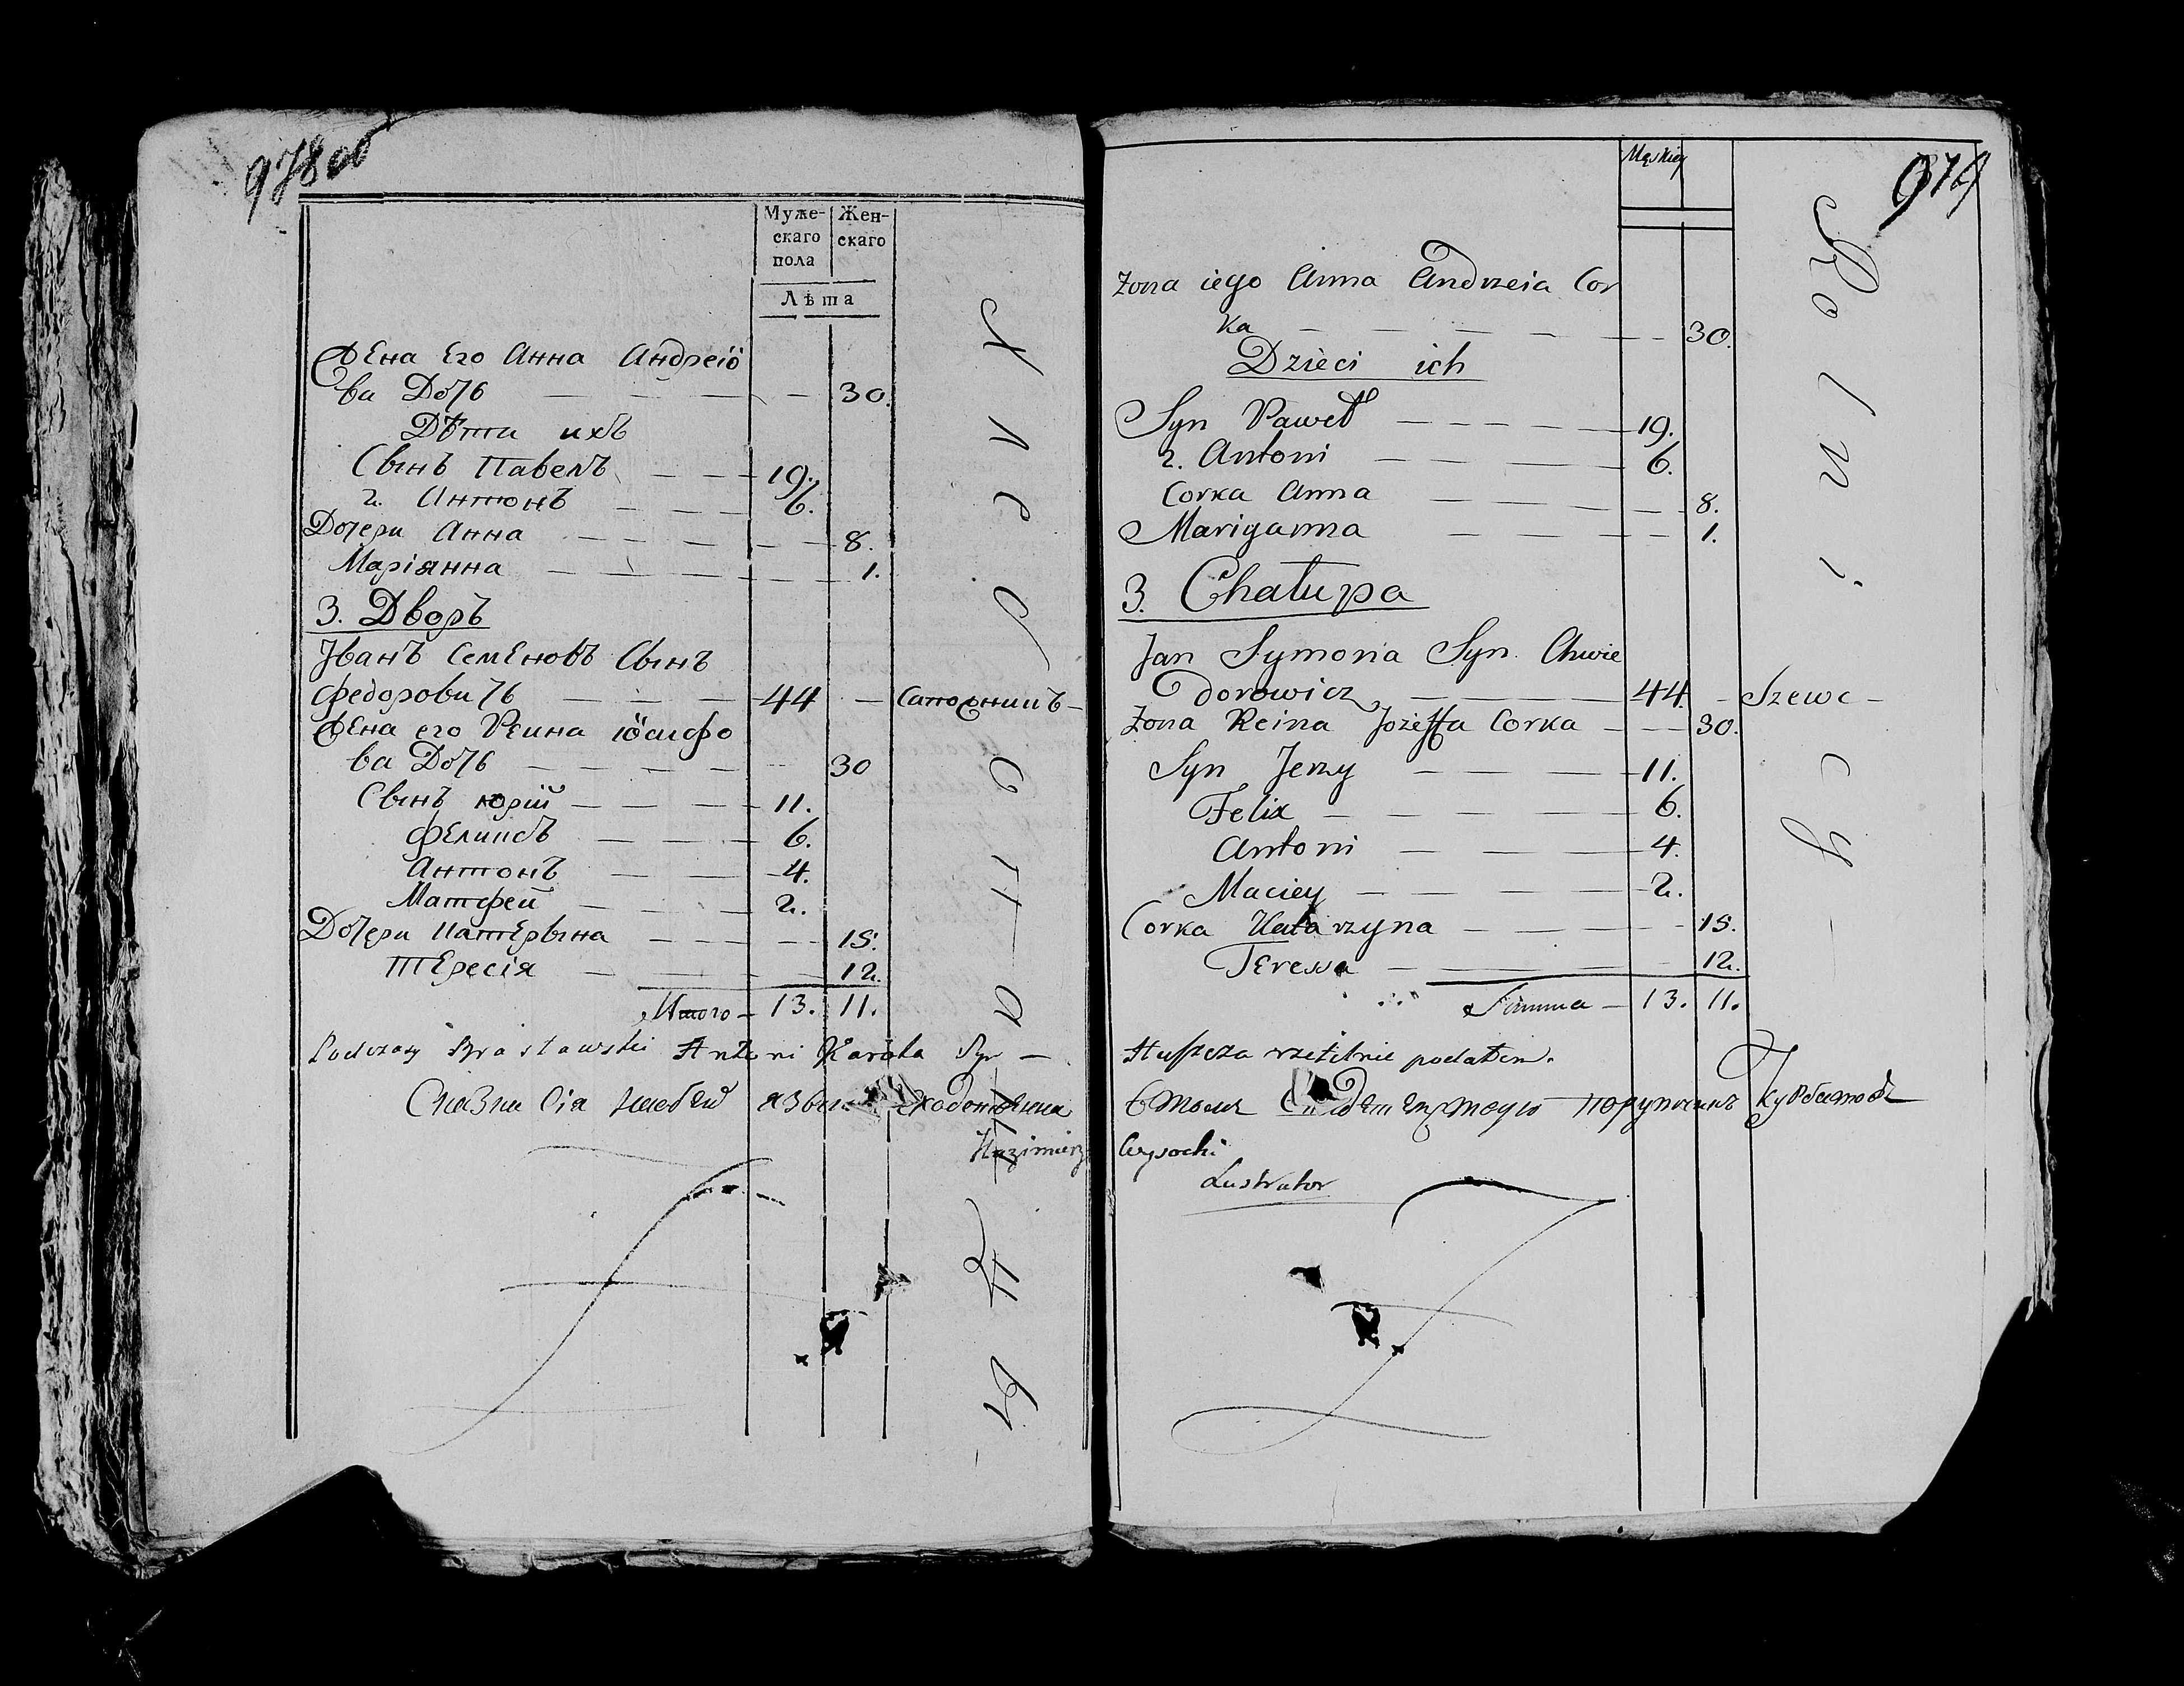 978 об
Муже-
скаго
пола
Жен-
скаго
Лѣта
Жена Его Анна Андреiо
ва Дочь — — — 30.
Дѣти ихъ
Сынъ Павелъ — — 19.
2. Антонъ — — — 6.
Дочери Анна — — — 8.
Марiянна — — — 1.
3. Дворъ
Iванъ Семеновъ Сынъ
Федоровичь — — — 44 — Сапожникъ —
Жена его Реина iосифо
ва Дочь — — — 30
Сынъ юрiй — — — 11.
Феликсъ — — 6.
Антонъ — — 4.
Матфей — — 2.
Дочери Катерына — — — 15.
Тересiя — — — 12.
Итого — 13. 11.
Podczaszy Brasławski Antoni Karola Syn —
Сказки сiя
Kazimierz
979
Męskiey
Żona iego Anna Andrzeia Cor
ka — — — — 30.
Dzieci ich
Syn Paweł — — — — 19.
2. Antoni — — — 6.
Corka Anna — — — 8.
Maryanna — — — 1.
3. Chałupa
Jan Symona Syn Chwie
dorowicz — — — 44. — Szewc —
Żona Reina Jozeffa Corka — — 30.
Syn Jerzy — — — 11.
Felix — — — — 6.
Antoni — — — 4.
Maciey — — — 2.
Corka Katarzyna — — — 15.
Teressa — — — 12.
Summa — 13. 11.
Huszcza rzetelnie podałem.
порутчикъ Курбатовъ
Wysocki
Lustrator
Rolnicy —